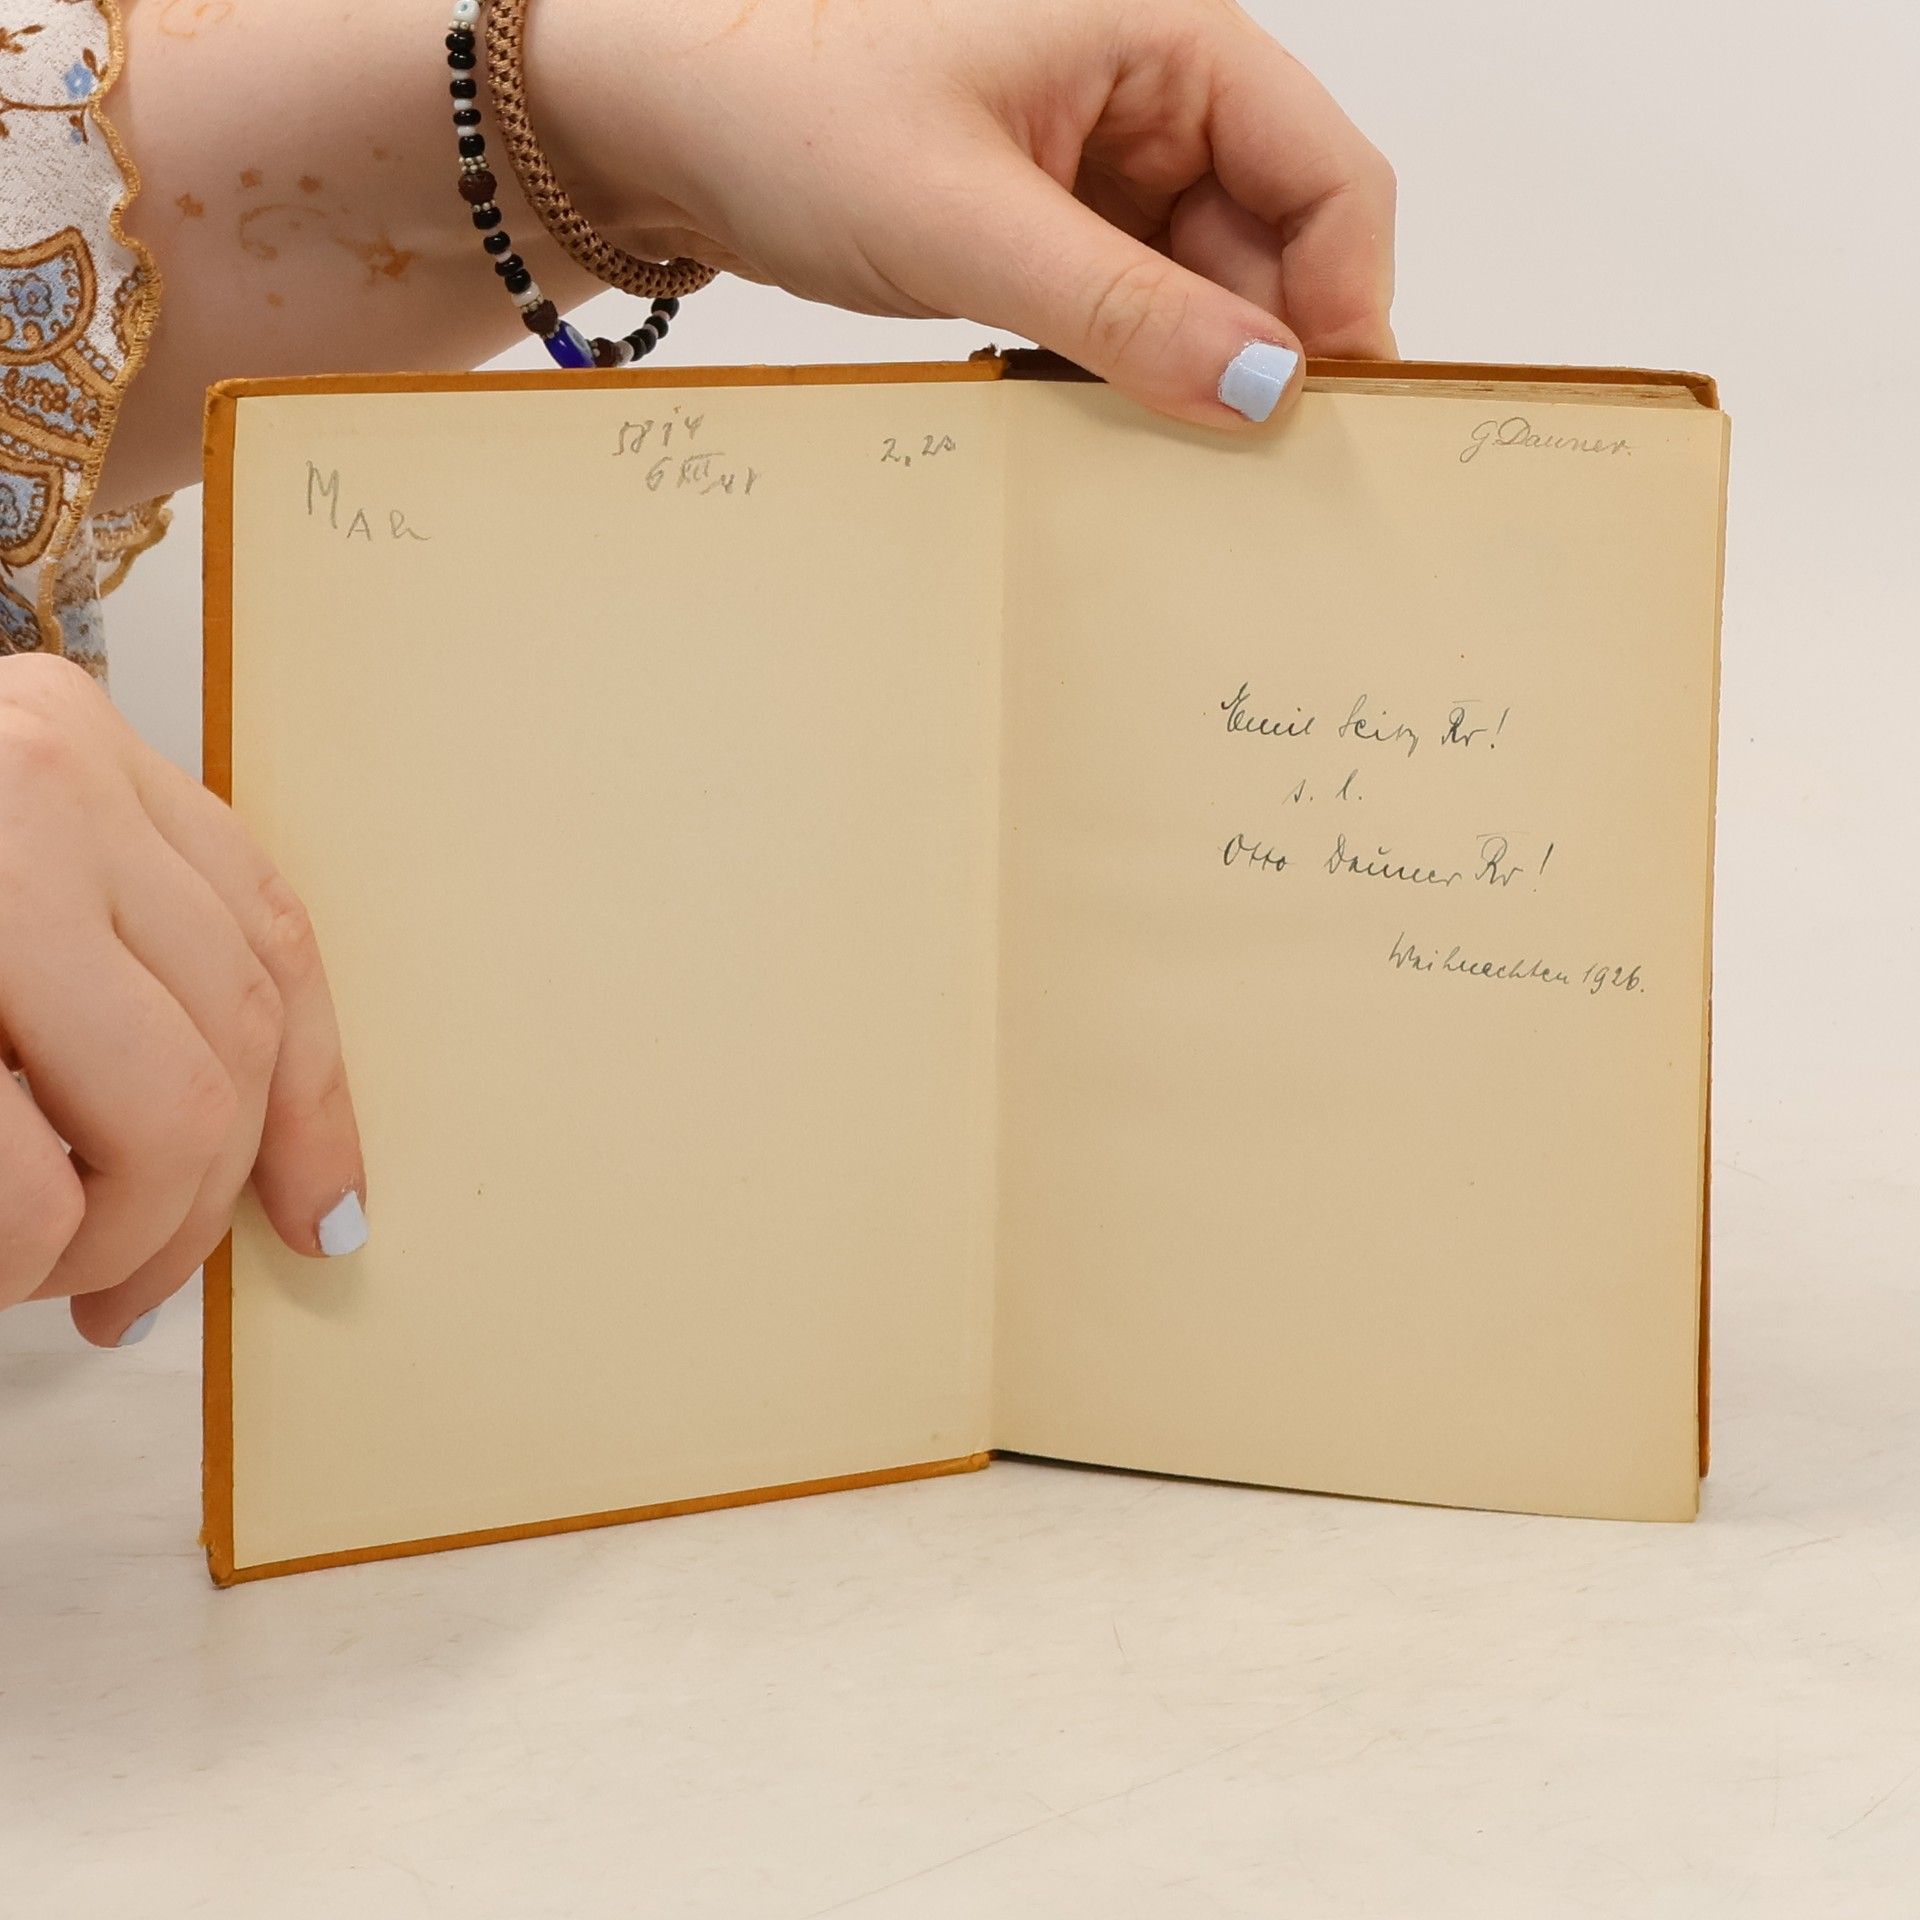 5814
6 XII 48
2,20
G Dauner.
Emil Seitz Rr!
s. l.
Otto Dauner Rr!
Weihnachten 1926.